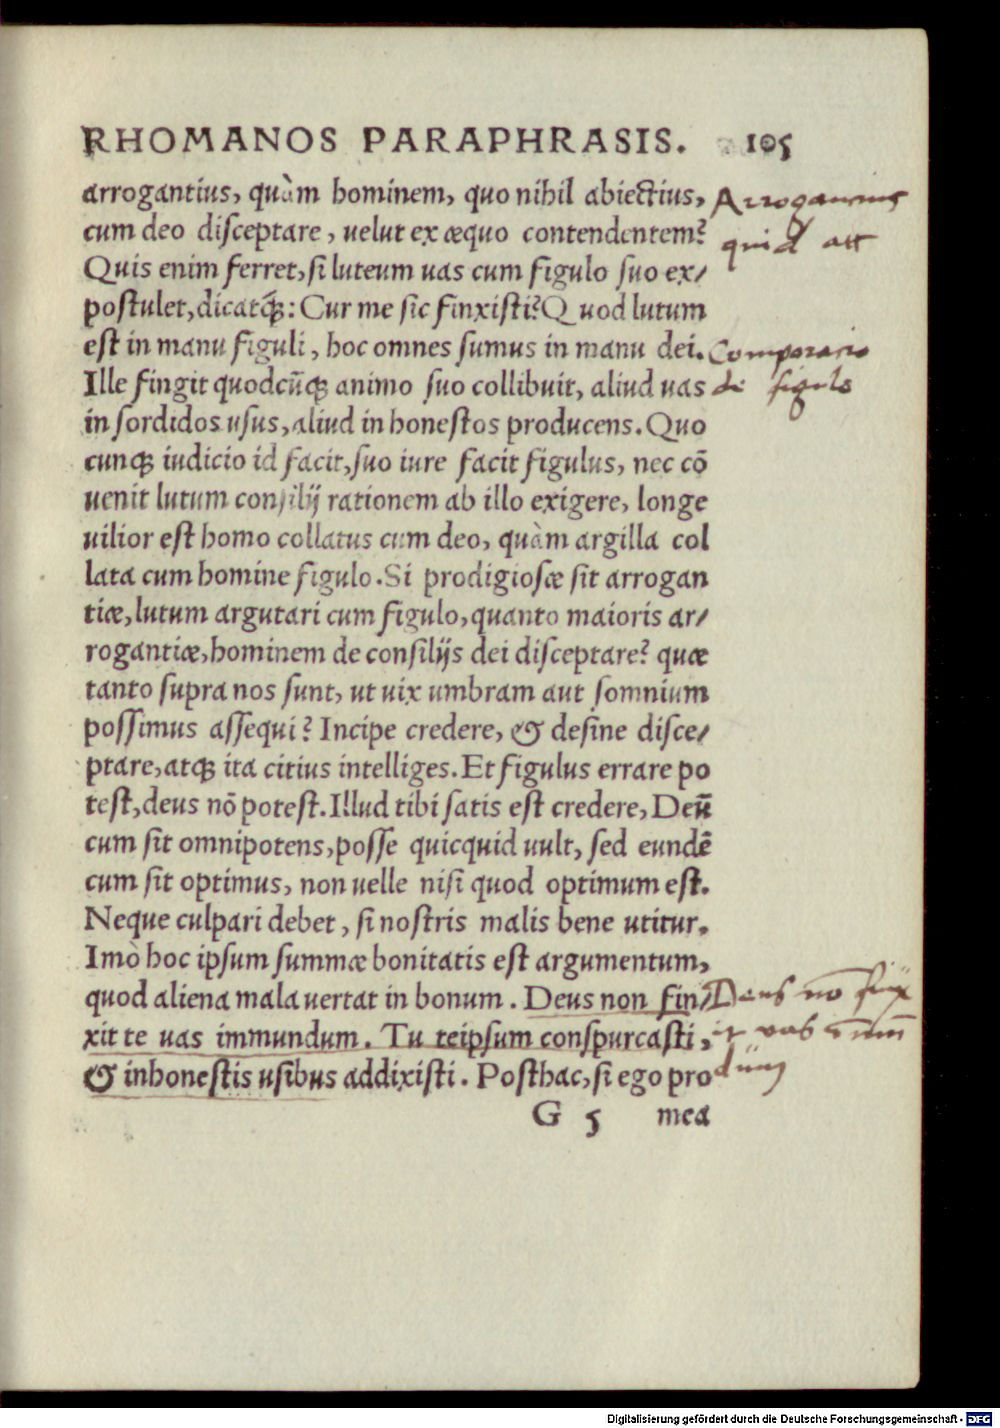 RHOMANOS PARAPHRASIS. 105
arrogantius, quàm hominem, quo nihil abiectius,
cum deo disceptare, uelut ex æquo contendentem?
Quis enim ferret, si luteum uas cum figulo suo ex/
postulet, dicatq́;: Cur me sic finxisti? Quod lutum
est in manu figuli, hoc omnes sumus in manu dei.
Ille fingit quodcūq; animo suo collibuit, aliud uas
in sordidos usus, aliud in honestos producens. Quo
cunq; iudicio id facit, suo iure facit figulus, nec cō
uenit lutum consilij rationem ab illo exigere, longe
uilior est homo collatus cum deo, quàm argilla col
lata cum homine figulo. Si prodigiosæ sit arrogan
tiæ, lutum argutari cum figulo, quanto maioris ar/
rogantiæ, hominem de consilijs dei disceptare? quæ
tanto supra nos sunt, ut uix umbram aut somnium
possimus assequi? Incipe credere, & desine disce/
ptare, atq; ita citius intelliges. Et figulus errare po
test, deus nō potest. Illud tibi satis est credere, Deū
cum sit omnipotens, posse quicquid uult, sed eundē
cum sit optimus, non uelle nisi quod optimum est.
Neque culpari debet, si nostris malis bene utitur.
Imò hoc ipsum summæ bonitatis est argumentum,
quod aliena mala uertat in bonum. Deus non fin/
xit te uas immundum. Tu teipsum conspurcasti,
& inhonestis usibus addixisti. Posthac, si ego pro
G 5 mea
quid
Comparacio
de figulo
Deus nō finx
it vas īmm
dum
Digitalisierung gefördert durch die Deutsche Forschungsgemeinschaft - DFG